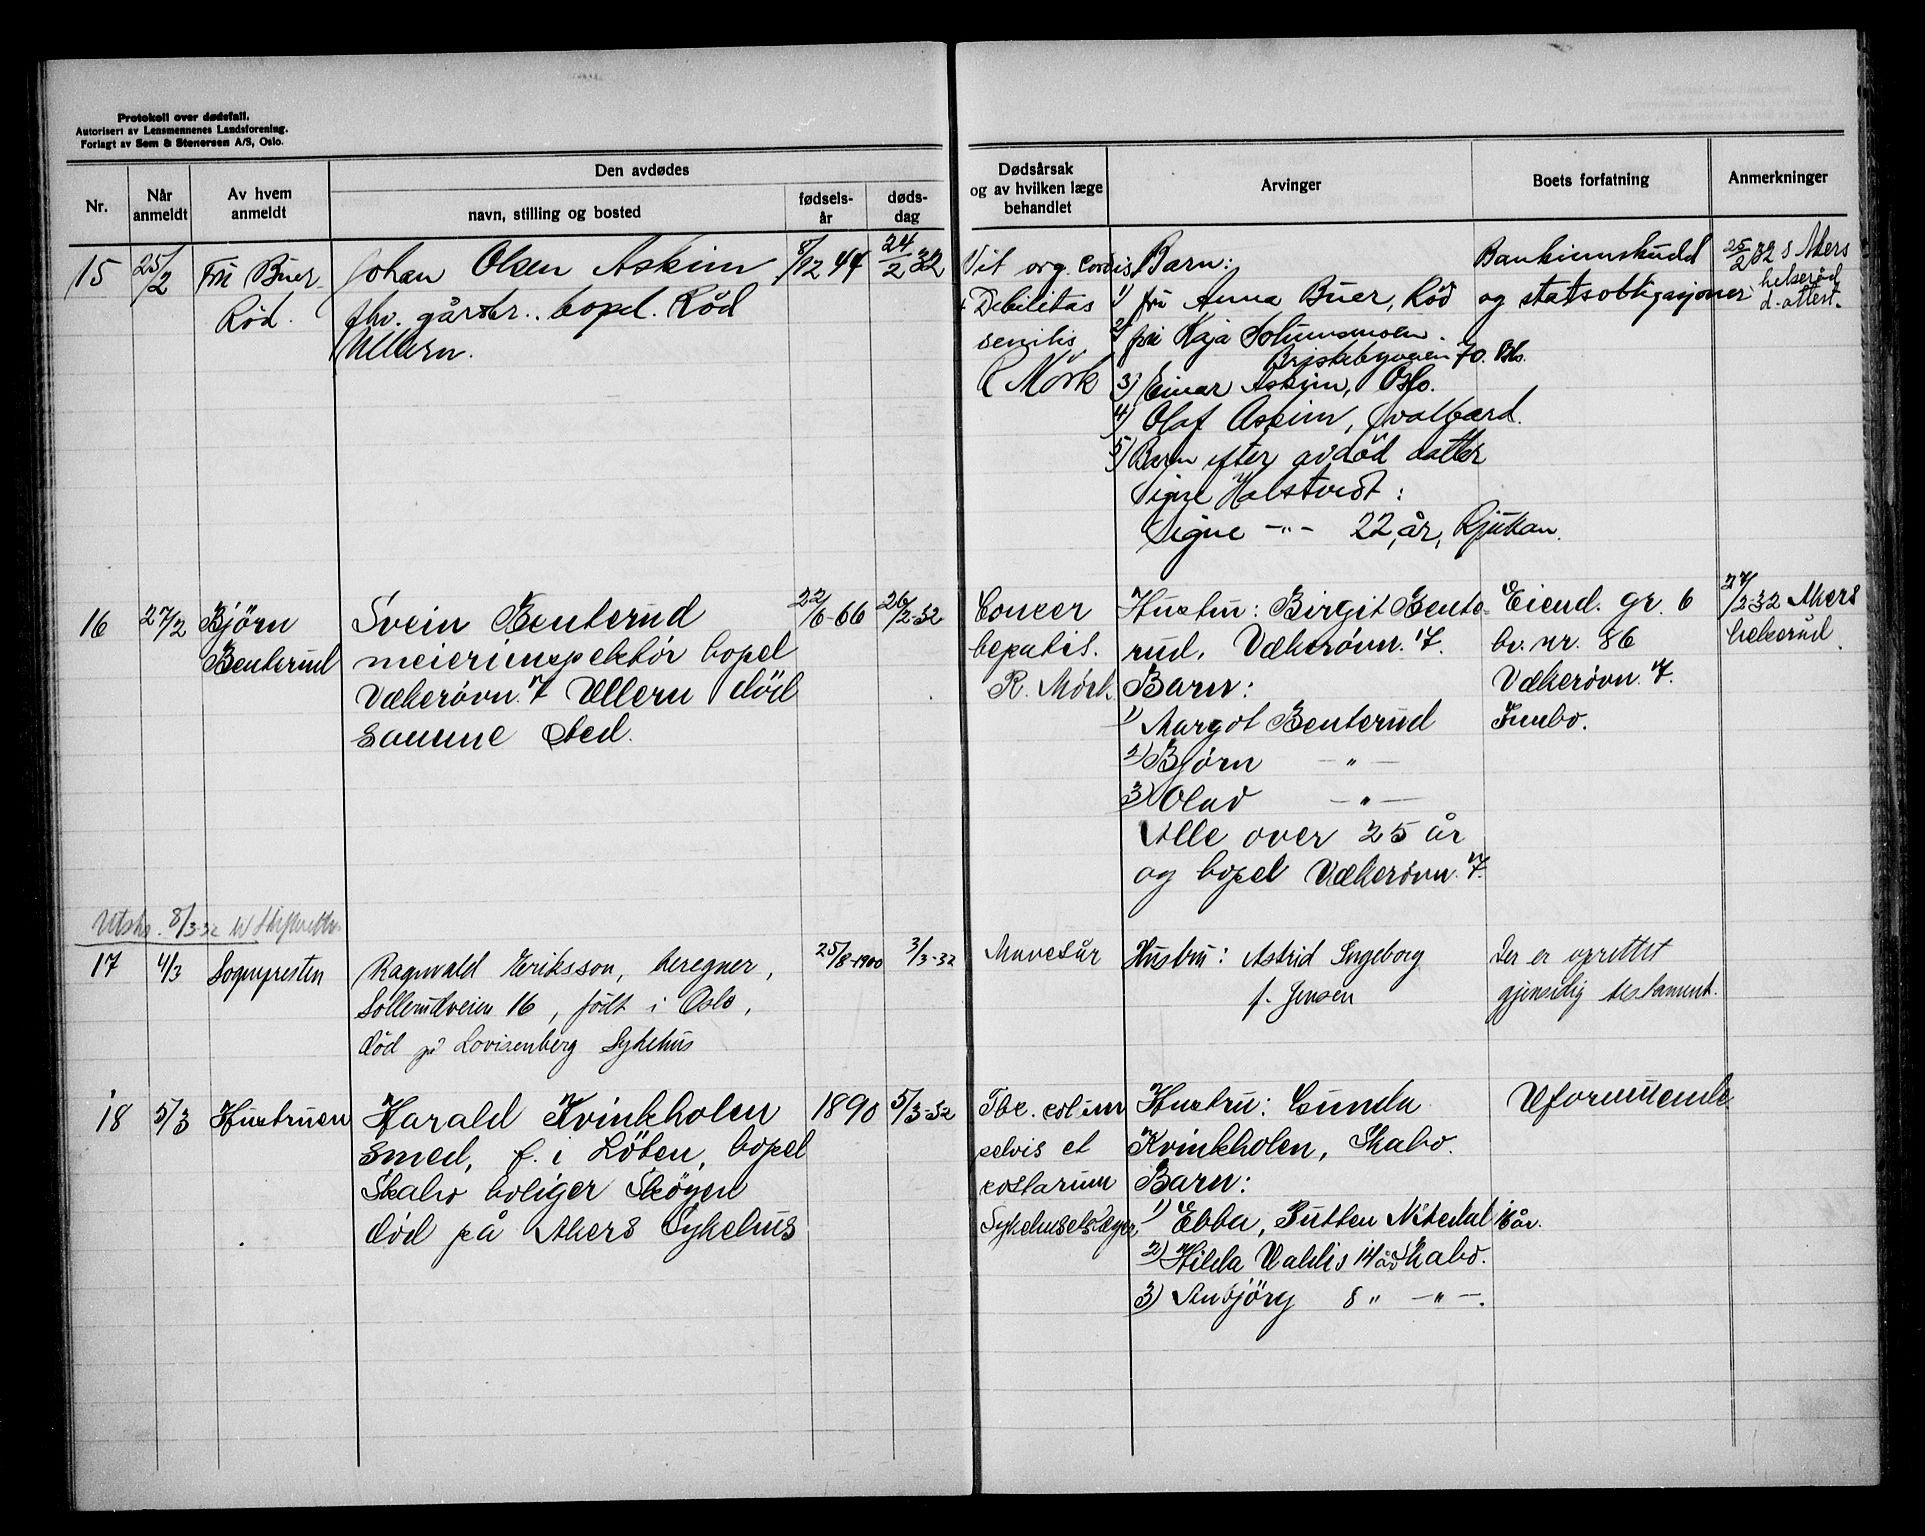 Protokoll over dødsfall.
Autorisert av Lensmennenes Landsforening.
Forlagt av Sem & Stenersen A/S, Oslo.
Nr.
Når anmeldt
Av hvem anmeldt
Den avdødes
navn, stilling og bosted
fødsels-år
døds-dag
Dødsårsak og av hvilken læge behandlet
Arvinger
Boets forfatning
Anmerkninger
15
25/2
Fru Buer
Rød.
Johan Olsen Askim
fhv. gårdbr.. bopel. Rød
Ullern.
8/12 44
24/2 32
Vit org. cordis
+ Debilitas
senilis
R Mørk
Barn:
1) fru Anna Buer, Rød
2) fru Kaja Solumsmoen
Briskebyveien 70. Oslo.
3) Einar Askim, Oslo.
4) Olaf Askim, Svalbard.
5) Barn efter avdød datter
Signe Holstvedt:
Signe -"- 22 år, Rjukan.
Bankinnskudd
og statsobligasjoner
25/2 32 s Akers
helseråd
d-attest.
16
27/2
Bjørn
Benterud
Svein Benterud
meieriinspektør bopel
Vækerøvn. 7 Ullern død
samme sted.
22/6-66
26/2-32
Cancer
hepatis.
R. Mørk.
Hustru: Birgit Bente-
rud, Vækerøvn. 7.
Barn:
1) Margot Benterud
2) Bjørn -"-
3) Olav -"-
Alle over 25 år
og bopel Vækerøvn. 7.
Eiend. gr. 6
br. nr. 86
Vækerøvn. 7.
Innbo.
27/2-32 Akers
helseråd.
Utskr. 8/3-32 til Skifteretten
17
4/3
Sognepresten
Ragnvald Eriksson, beregner,
Sollerudveien 16, født i Oslo,
død på Lovisenberg Sykehus
25/8-1900
3/3-32
Mavesår
Hustru: Astrid Ingeborg
f. Jensen
Der er oprettet
gjensidig testament.
18
5/3
Hustruen
Harald Kvinkholen
smed, f. i Löten, bopel
Skabo boliger Skøyen
død på Akers Sykehus
1890
5/3-32
Tbc. colum
pelvis et
costarum
Sykehusets læger
Hustru: Gunda
Kvinkholen, Skabo.
Barn:
1) Ebba, Rutten Nitedal 16 år.
2) Hilda Valdis 14 år Skabo.
3) Ansjörg 8 " -"-.
Uformuende